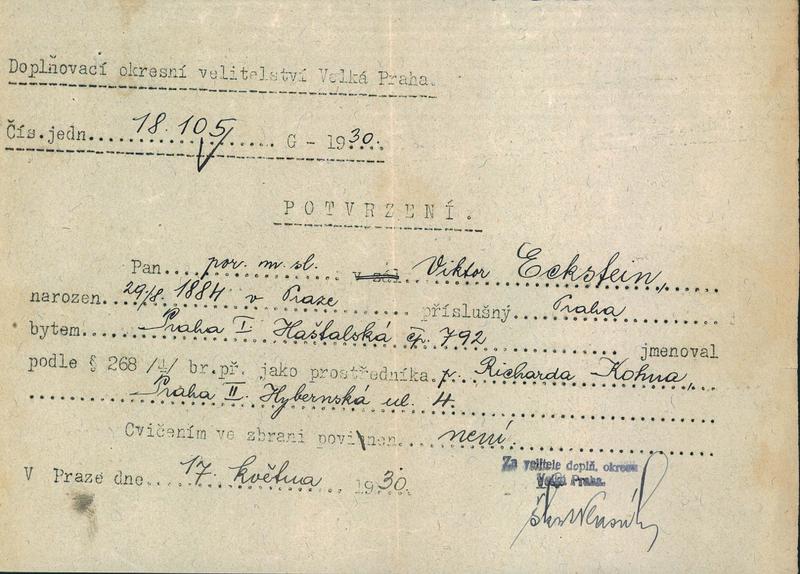 Doplňovací okresní velitelství Velká Praha.
Čís.jedn. 18.105/ G - 1930.
POTVRZENÍ.
Pan por. m. sl. v zál Viktor Eckstein,
narozen 29/8. 1884 v Praze příslušný Praha
bytem Praha I Haštalská čp. 792 jmenoval
podle § 268 /4/ br.př. jako prostředníka p. Richarda Kohna,
Praha II. Hybernská ul. 4.
Cvičením ve zbrani povinnen není.
V Praze dne 17. května 1930.
Za velitele doplň. okresu
Velká Praha.